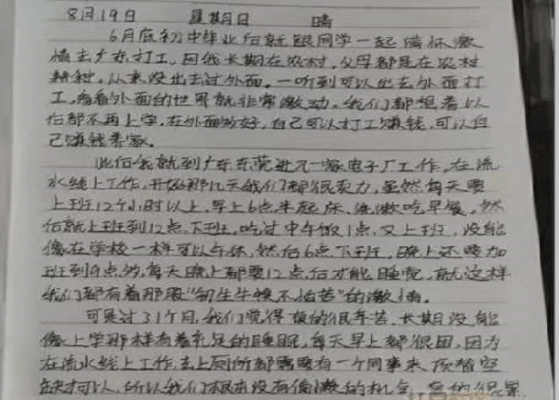 8月19日 星期日 晴
6月底初中毕业后就跟同学一起满怀激
情去广东打工,因我长期在农村,父母都是在农村
耕种,从来没出去过外面。一听到可以出去外面打
工,看看外面的世界就非常激动。我们都想着以
后都不再上学,在外面多好,自己可以打工赚钱,可以自
己赚钱养家。
此后我就到广东东莞进了一家电子厂工作,在流
水线上工作,开始那几天我们都很卖力,虽然每天要
上班12个小时以上,早上6点半起床,洗漱吃早餐,然
后就上班到12点下班,吃过中午饭1点又上班,没能
像在学校一样可以午休,然后6点下班,晚上还要加
班到9点多,每天晚上都要12点后才能睡觉,就这样
我们都有着那股"初生牛犊不怕苦"的激情。
可是过了1个月,我们觉得真的很辛苦,长期没能
像上学那样有着充足的睡眠,每天早上都很困,因为
在流水线上工作,去上厕所都需要有一个同事来顶替空
缺才可以,所以我们根本没有偷懒的机会,真的很累